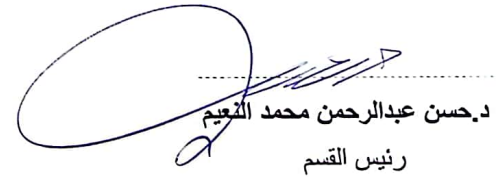 د.حسن عبدالرحمن محمد النعيم
رئيس القسم